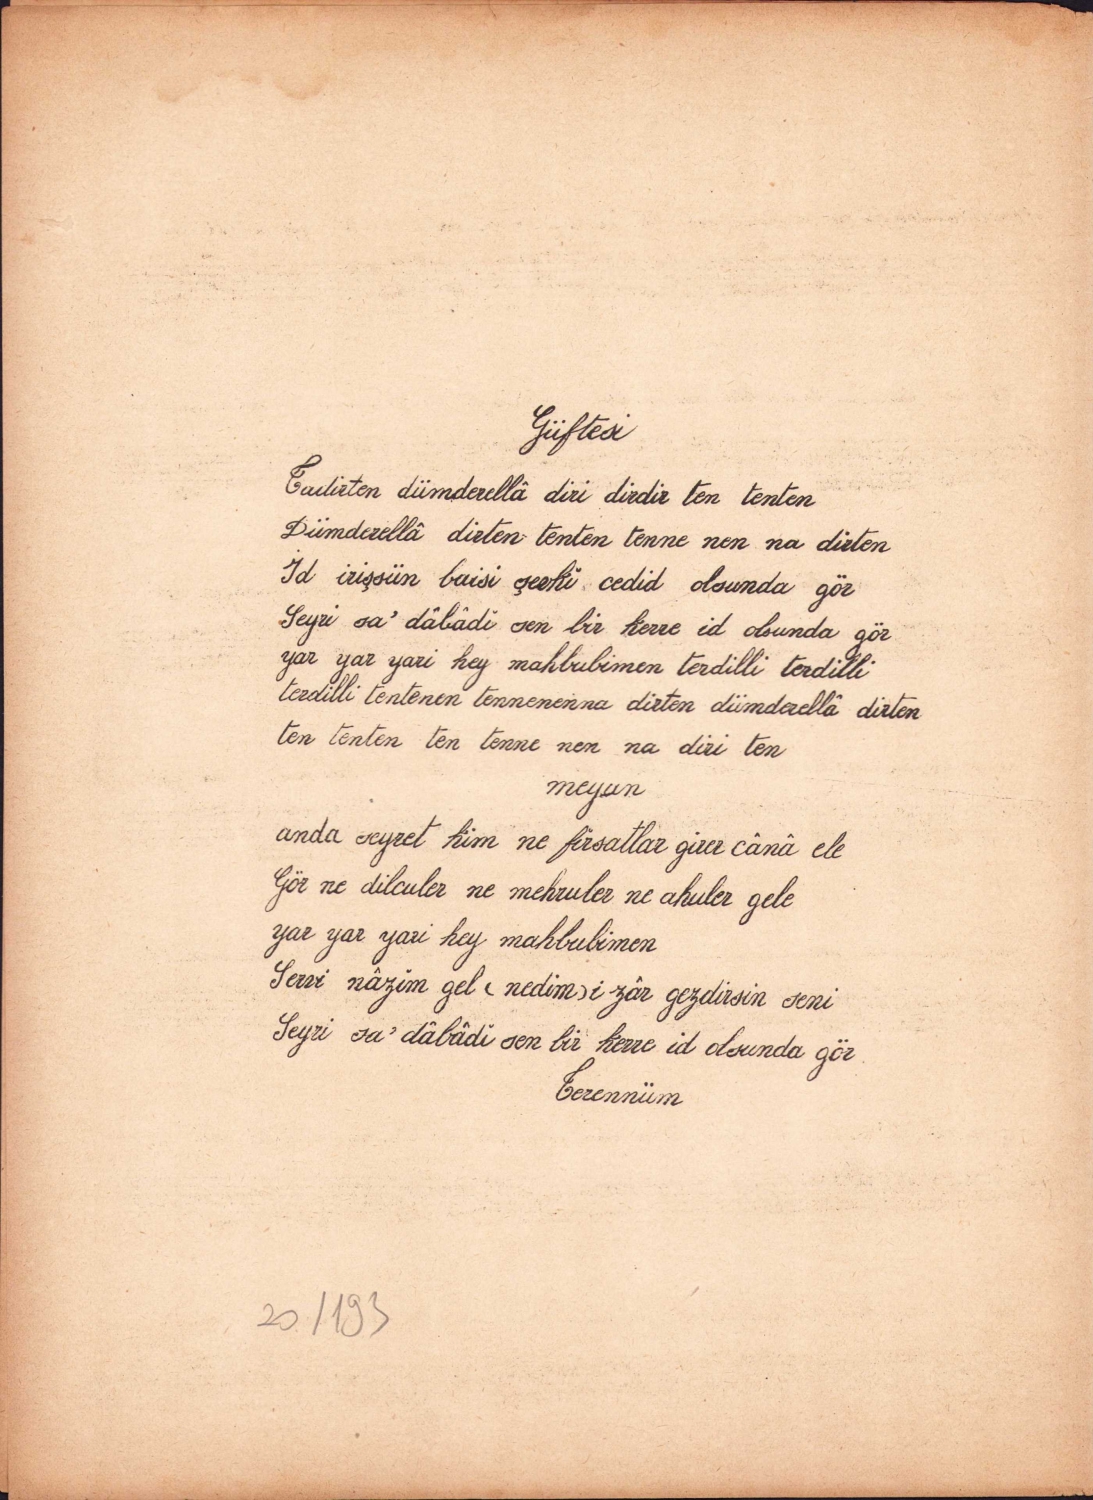 Güftesi
Tadirten dümderellâ diri dirdir ten tenten
Dümderellâ dirten tenten tenne nen na dirten
Îd irişsün baisi şevkî cedid olsunda gör
Seyri sa'dâbâdi sen bir kerre id olsunda gör
yar yar yari hey mahbubimen terdilli terdilli
terdilli tentenen tennenenna dirten dümderellâ dirten
ten tenten ten tenne nen na diri ten
meyan
anda seyret kim ne firsatlar girer cânâ ele
Gör ne dilculer ne mehruler ne ahuler gele
yar yar yari hey mahbubimen
Servi nâzim gel (nedim)i zâr gezdirsin seni
Seyri sa'dâbâdi sen bir kerre id olsunda gör
Terennüm
20/193